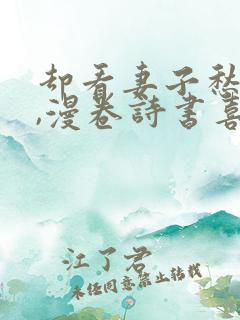 却看妻子愁
,漫卷詩書喜
江了君
未经同意禁止转载